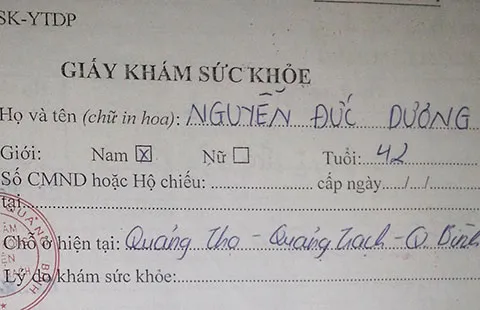 SK-YTDP
GIẤY KHÁM SỨC KHỎE
Họ và tên (chữ in hoa): NGUYỄN ĐỨC DƯƠNG
Giới: Nam ☒ Nữ ☐ Tuổi: 42
Số CMND hoặc Hộ chiếu: .................... cấp ngày..../..../
tại:
Chỗ ở hiện tại: Quảng Thọ - Quảng Trạch - Q Bình
Lý do khám sức khỏe:
QUẢNG BÌNH